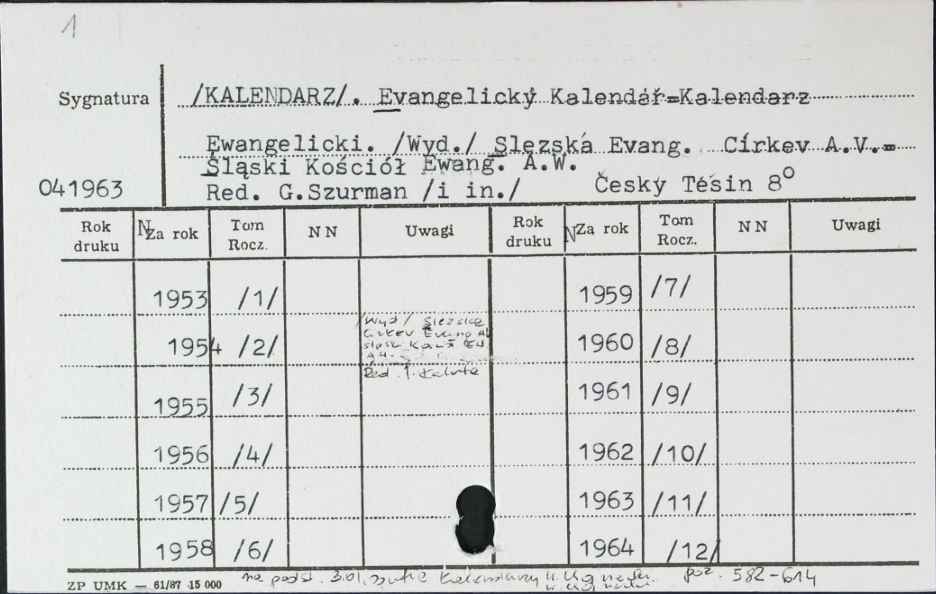 1
Sygnatura
/KALENDARZ/. Evangelický Kalendář=Kalendarz
Ewangelicki. /Wyd./ Slezská Evang. Církev A.V.=
Śląski Kościół Ewang. A.W.
041963
Red. G.Szurman /i in./ Český Těšin 8°
Rok druku N Za rok Tom Rocz. N N Uwagi Rok druku N Za rok Tom Rocz. N N Uwagi
1953 /1/ 1959 /7/
1954 /2/ /Wyd/ Slezská 1960 /8/
Církev Evang
Red.
1955 /3/ 1961 /9/
1956 /4/ 1962 /10/
1957 /5/ 1963 /11/
1958 /6/ 1964 /12/
ZP UMK — 61/87 15 000 na podst. Kalendarzy poz. 582-614